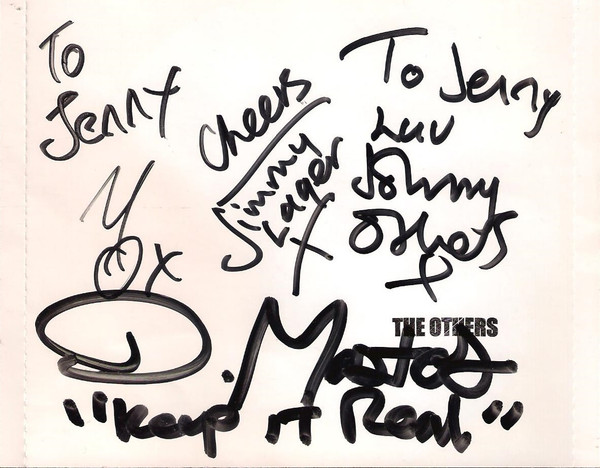 To
Jenny
Cheers
Jimmy
Lager
X
To Jenny
Luv
Johnny
Others
X
THE OTHERS
"Keep iT Real"